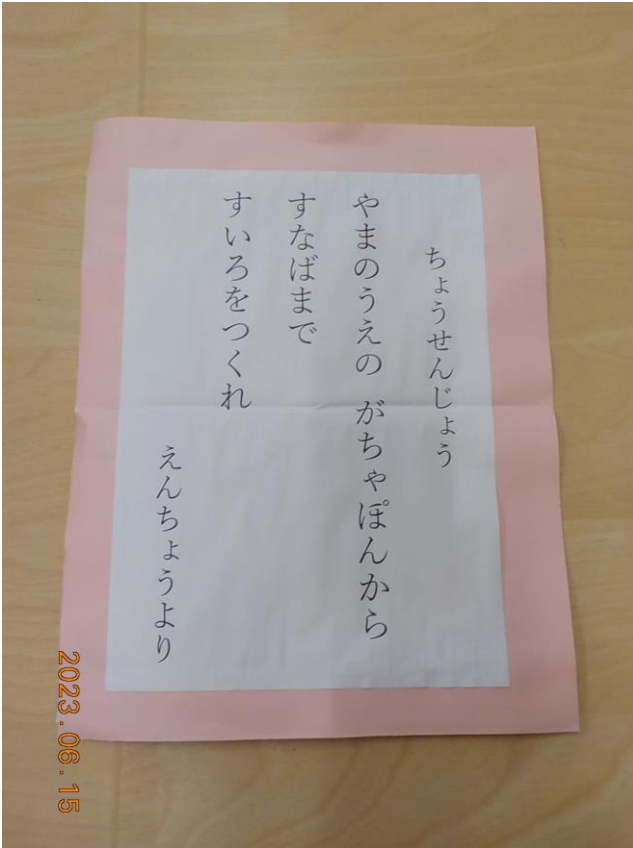 ちょうせんじょう
やまのうえの　がちゃぽんから
すなばまで
すいろをつくれ
えんちょうより
2023.06.15